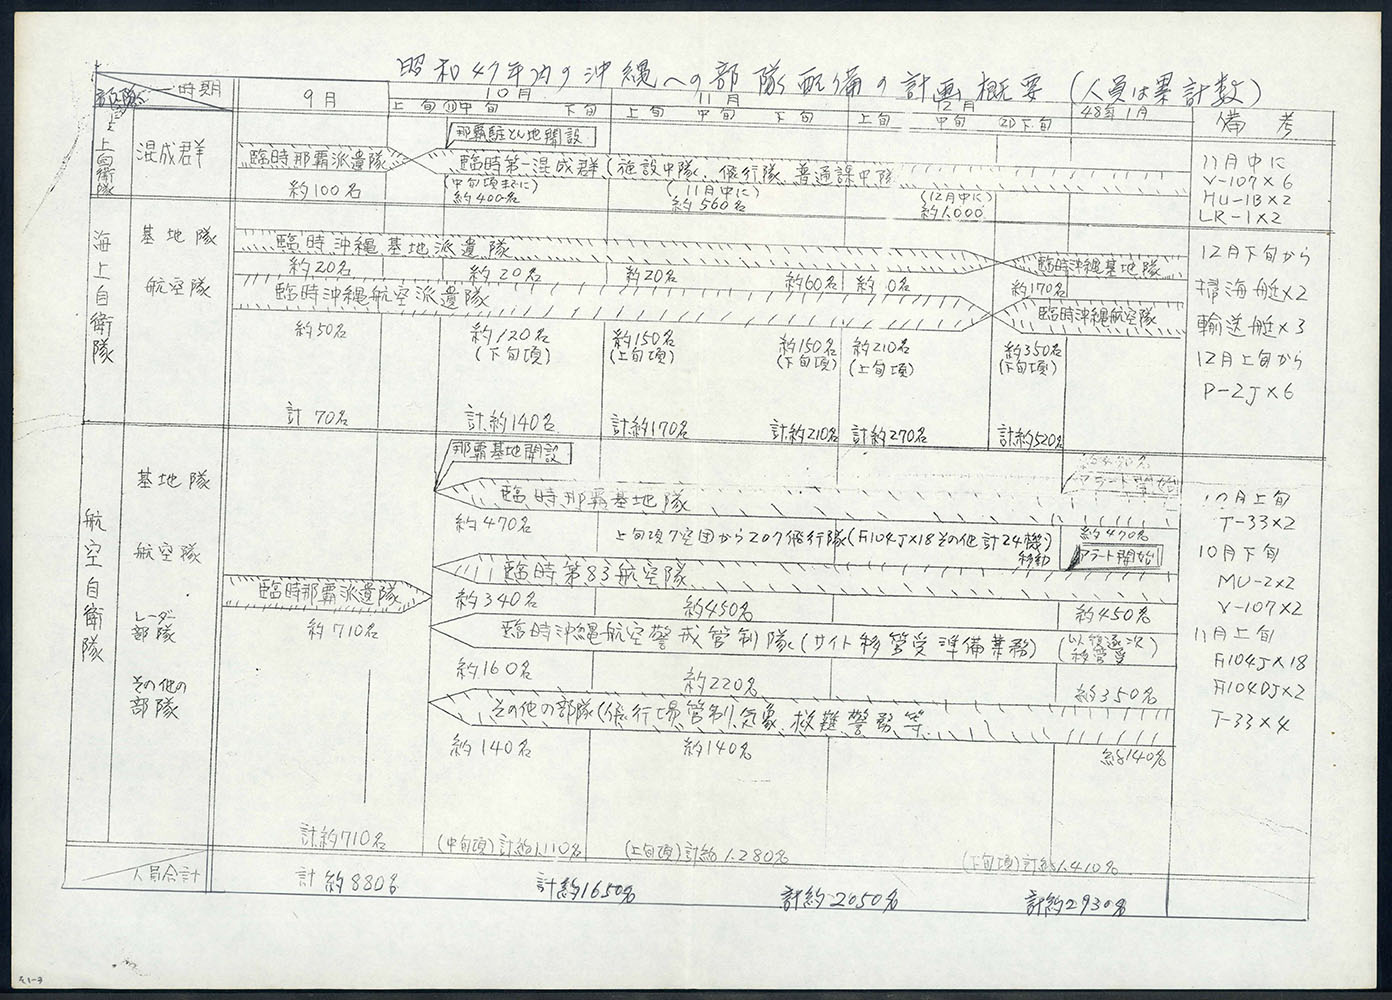 昭和47年内の沖縄への部隊配備の計画概要（人員は累計数）
部隊 時期
9月
10月
上旬 ⑪中旬 下旬
11月
上旬 中旬 下旬
12月
上旬 中旬 ㉑下旬
48年1月
備考
陸上自衛隊
混成群
那覇駐とん地開設
臨時那覇派遣隊
臨時第一混成群（施設中隊、飛行隊、普通課中隊
約100名
（中旬頃までに）
約400名
（11月中に）
約560名
（12月中に）
約1,000
11月中に
V-107×6
HU-1B×2
LR-1×2
海上自衛隊
基地隊
臨時沖縄基地派遣隊
臨時沖縄基地隊
約20名
約20名
約20名
約60名
約170名
航空隊
臨時沖縄航空派遣隊
臨時沖縄航空隊
約50名
約120名
（下旬頃）
約150名
（上旬頃）
約150名
（下旬頃）
約210名
（上旬頃）
約350名
（下旬頃）
計 70名
計約140名
計約170名
計約210名
計約270名
計約520名
12月下旬から
掃海艇×2
輸送艇×3
12月上旬から
P-2J×6
航空自衛隊
基地隊
那覇基地開設
臨時那覇基地隊
約470名
上旬頃7空団から207飛行隊（F104J×18その他計24機）
移動
約470名
アラート開始
航空隊
臨時第83航空隊
臨時那覇派遣隊
約340名
約450名
約450名
レーダー
部隊
約710名
臨時沖縄航空警戒管制隊（サイト移管受準備業務）
（以後逐次
移管受）
約160名
約220名
約350名
その他の
部隊
その他の部隊（飛行場管制、気象、救難、警務等
約140名
約140名
約140名
計約710名
（中旬頃）計約1,110名
（上旬頃）計約1,280名
（下旬頃）計約1,410名
10月上旬
T-33×2
10月下旬
MU-2×2
V-107×2
11月上旬
F104J×18
F104DJ×2
T-33×4
人員合計
計 約880名
計約1650名
計約2050名
計約2930名